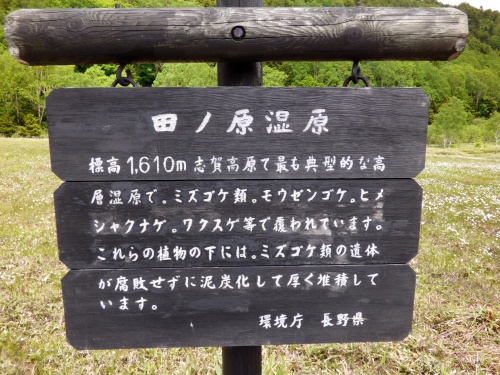 田ノ原湿原
標高1,610m 志賀高原で最も典型的な高
層湿原で。ミズゴケ類。モウゼンゴケ。ヒメ
シャクナゲ。ワクスゲ等で覆われています。
これらの植物の下には。ミズゴケ類の遺体
が腐敗せずに泥炭化して厚く堆積して
います。
環境庁 長野県